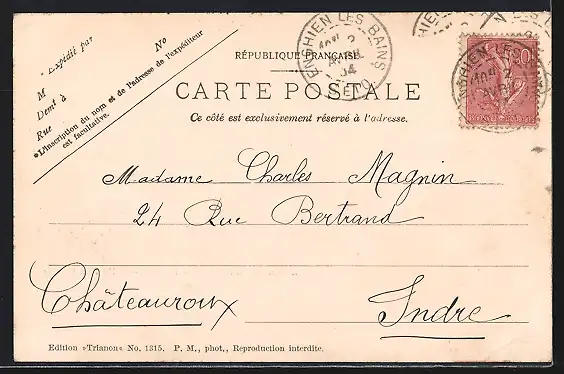 Expédié par
No
M
Demt à
Rue
*L'inscription du nom et de l'adresse de l'expéditeur
est facultative.
ENGHIEN LES BAINS
2
AVRIL
04
RÉPUBLIQUE FRANÇAISE
CARTE POSTALE
Ce côté est exclusivement réservé à l'adresse.
Madame Charles Magnin
24 Rue Bertrand
Châteauroux
Indre
Edition »Trianon« No. 1315. P. M., phot., Reproduction interdite.